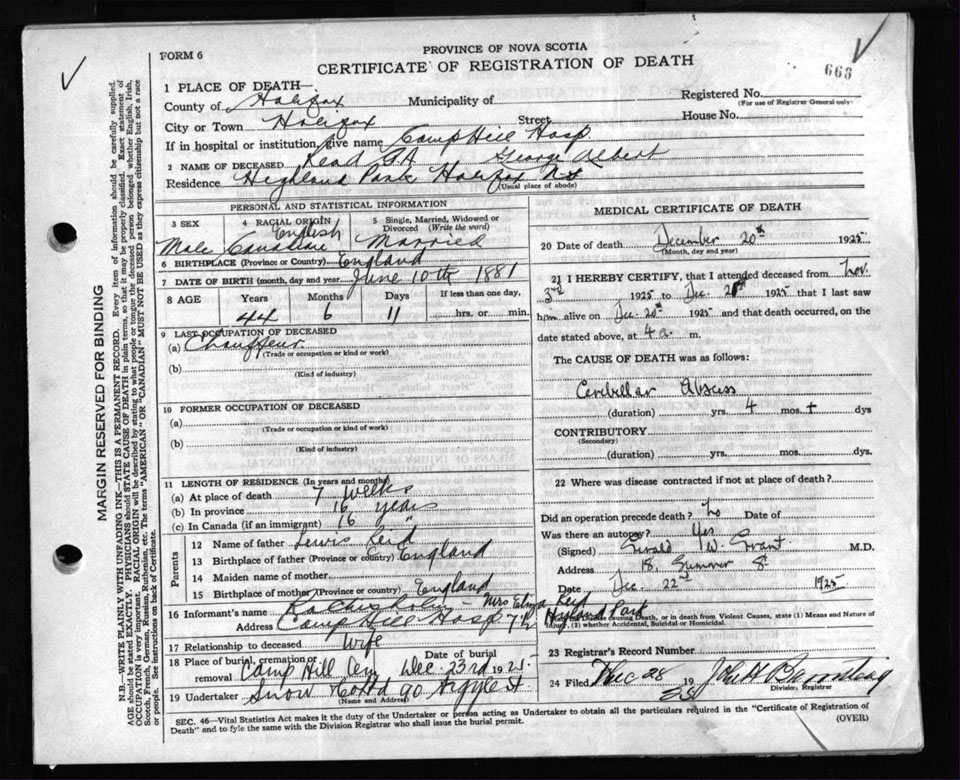 PROVINCE OF NOVA SCOTIA
FORM 6
CERTIFICATE OF REGISTRATION OF DEATH
668
1 PLACE OF DEATH—
County of Halifax Municipality of
Registered No.
(For use of Registrar General only)
City or Town Halifax Street
House No.
If in hospital or institution, give name Camp Hill Hosp.
2 NAME OF DECEASED Read G A George Albert
Residence Highland Park Halifax N S
(Usual place of abode)
PERSONAL AND STATISTICAL INFORMATION
3 SEX 4 RACIAL ORIGIN 5 Single, Married, Widowed or Divorced (Write the word)
English
Male Canadian Married
6 BIRTHPLACE (Province or Country) England
7 DATE OF BIRTH (month, day and year) June 10th 1881
8 AGE Years Months Days If less than one day,
44 6 11 hrs. or min.
9 LAST OCCUPATION OF DECEASED
(a) Chauffeur
(Trade or occupation or kind or work)
(b)
(Kind of industry)
10 FORMER OCCUPATION OF DECEASED
(a)
(Trade or occupation or kind of work)
(b)
(Kind of industry)
11 LENGTH OF RESIDENCE (In years and months)
(a) At place of death 7 weeks
(b) In province 16 years
(c) In Canada (if an immigrant) 16 "
Parents
12 Name of father Lewis Reid
13 Birthplace of father (Province or country) England
14 Maiden name of mother
15 Birthplace of mother (Province or country) England
16 Informant's name Mrs Eliza Reid
Address Camp Hill Hosp Highland Park
17 Relationship to deceased Wife
18 Place of burial, cremation or removal Camp Hill Cem Date of burial Dec. 23rd 1925
19 Undertaker Snow & Co Ltd 90 Argyle St
(Name and Address)
MEDICAL CERTIFICATE OF DEATH
20 Date of death December 20th 1925
(Month, day and year)
21 I HEREBY CERTIFY, that I attended deceased from Nov.
3rd 1925 to Dec. 20th 1925 that I last saw
him alive on Dec. 20th 1925 and that death occurred, on
date stated above, at 4 a. m.
The CAUSE OF DEATH was as follows:
Cerebellar Abscess
(duration) yrs. 4 mos. + dys
CONTRIBUTORY
(Secondary)
(duration) yrs. mos. dys.
22 Where was disease contracted if not at place of death?
Did an operation precede death? No Date of
Was there an autopsy? Yes
(Signed) Gerald W. Grant M.D.
Address 18 Summer St
Date Dec. 22nd 1925
causing Death, or in death from Violent Causes, state (1) Means and Nature of
Injury, (2) whether Accidental, Suicidal or Homicidal.
23 Registrar's Record Number
24 Filed Dec 28 1925
Division Registrar
SEC. 46—Vital Statistics Act makes it the duty of the Undertaker or person acting as Undertaker to obtain all the particulars required in the "Certificate of Registration of
Death" and to fyle the same with the Division Registrar who shall issue the burial permit.
(OVER)
MARGIN RESERVED FOR BINDING
N.B.—WRITE PLAINLY WITH UNFADING INK—THIS IS A PERMANENT RECORD. Every item of information should be carefully supplied.
AGE should be stated EXACTLY. PHYSICIANS should STATE CAUSE OF DEATH in plain terms, so that it may be properly classified. Exact statement of
OCCUPATION is very important. RACIAL ORIGIN will be described by stating to what people or tongue the deceased person belonged whether English, Irish,
Scotch, French, German, Russian, Ruthenian, etc. The terms "AMERICAN" OR "CANADIAN" MUST NOT BE USED as they express citizenship but not a race
or people. See instructions on back of Certificate.